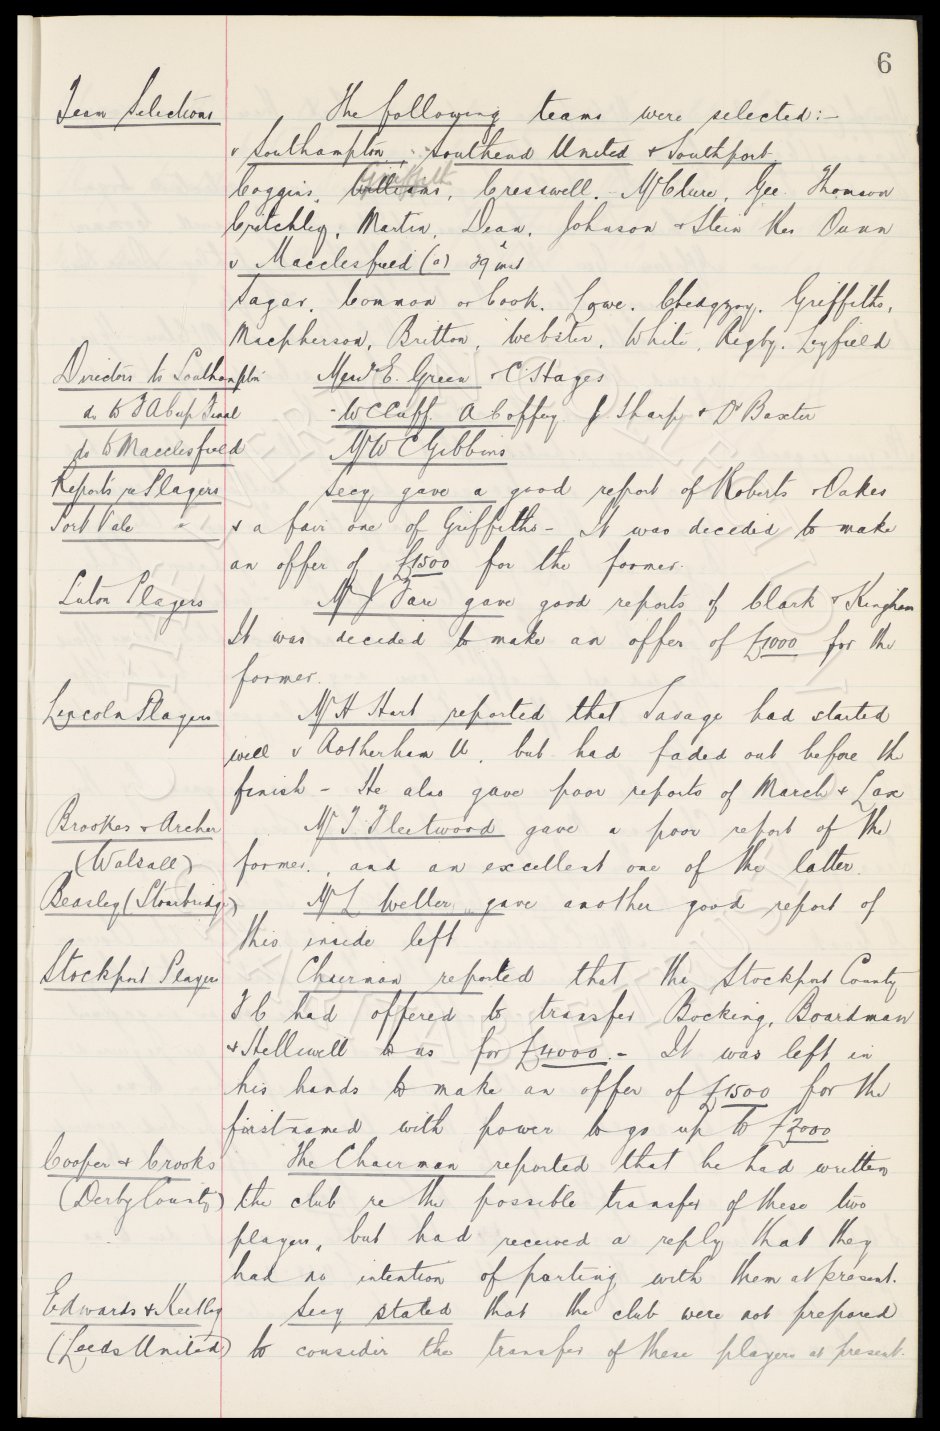 6
Team Selections The following teams were selected:-
v Southampton, Southend United & Southport
Coggins, Williams, Griffiths Cresswell, McClure, Gee. Thomson
Critchley, Martin, Dean, Johnson & Stein Res Dunn
v Macclesfield (a) 29 inst
Sagar, Common or Cook. Lowe. Griffiths,
Macpherson, Britton, Webster, White, Rigby. Leyfield
Directors to Southampton Messrs E. Green & C. Stages
do to FA Cup Final - W Cuff. A Coffey J Sharp & Dr Baxter
do to Macclesfield Mr W C Gibbins
Reports re Players Secy gave a good report of Roberts & Oakes
Port Vale " & a fair one of Griffiths - It was decided to make
an offer of £1500 for the former.
Luton Players Mr J Fare gave good reports of Clark & Kingham
It was decided to make an offer of £1000 for the
former.
Lincoln Players Mr H Hart reported that Savage had started
well v Rotherham U. but had faded out before the
finish - He also gave poor reports of March & Lax
Brookes & Archer Mr T. Fleetwood gave a poor report of the
(Walsall) former, and an excellent one of the latter.
Beasley (Stourbridge) Mr L Weller gave another good report of
this inside left
Stockport Players Chairman reported that the Stockport County
F C had offered to transfer Bocking, Boardman
& Helliwell to us for £4000. - It was left in
his hands to make an offer of £1500 for the
first named with power to go up to £2000
Cooper & Crooks The Chairman reported that he had written
(Derby County) the club re the possible transfer of these two
players, but had received a reply that they
had no intention of parting with them at present.
Edwards & Keetley Secy stated that the club were not prepared
(Leeds United) to consider the transfer of these players at present.